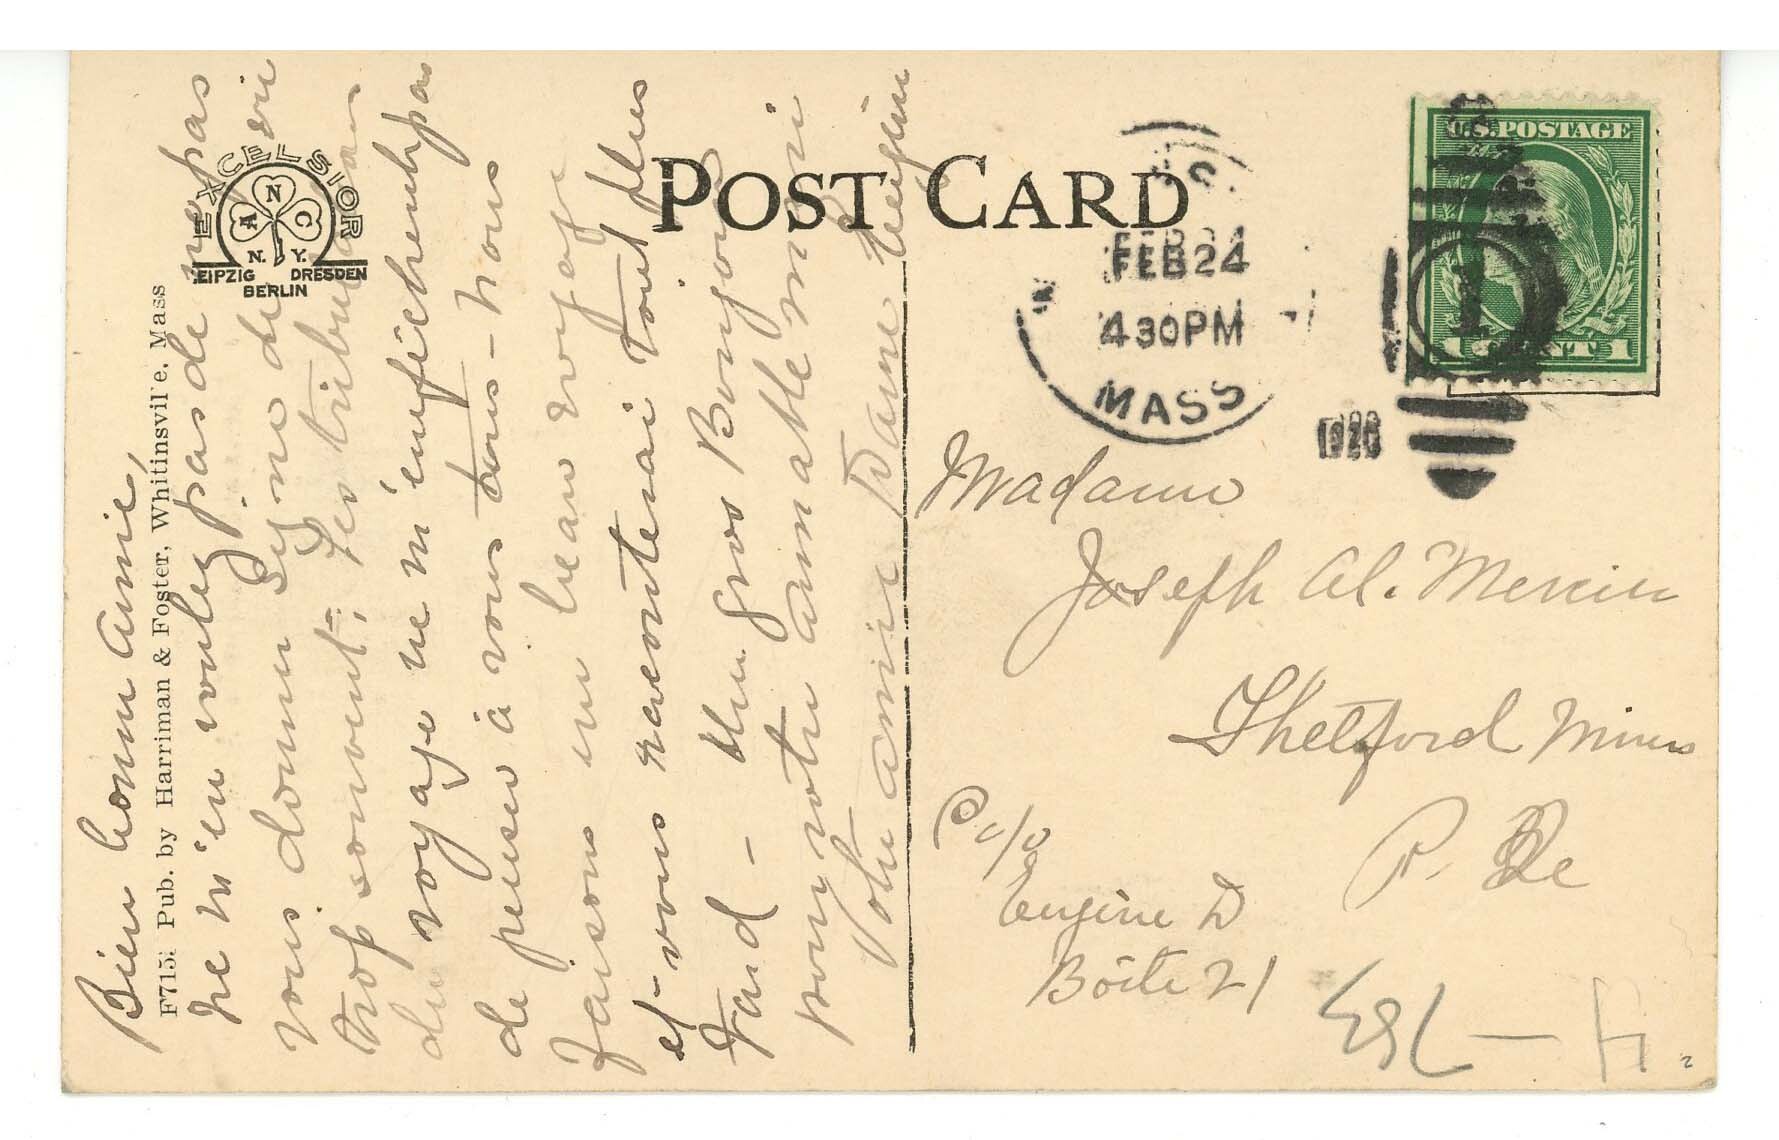 Bien bonne amie,
Ne m'en voulez pas de ne pas
vous donner signe de vie
trop souvent; les tribulations
du voyage ne m'empêchent pas
de penser à vous tous - nous
faisons un beau voyage
et vous raconterai tout plus
tard - Un gros Bonjour
pour votre aimable mari
Votre amie Dame Eugène
F715: Pub. by Harriman & Foster, Whitinsville, Mass
EXCELSIOR
A N C
N. Y.
LEIPZIG DRESDEN
BERLIN
POST CARD
FEB 24
4 30 PM
MASS
1926
U.S. POSTAGE
1 CENT 1
Madame
Joseph Al. Mercier
Thetford Mines
P. Qe
c/o
Eugène D
Boîte 21